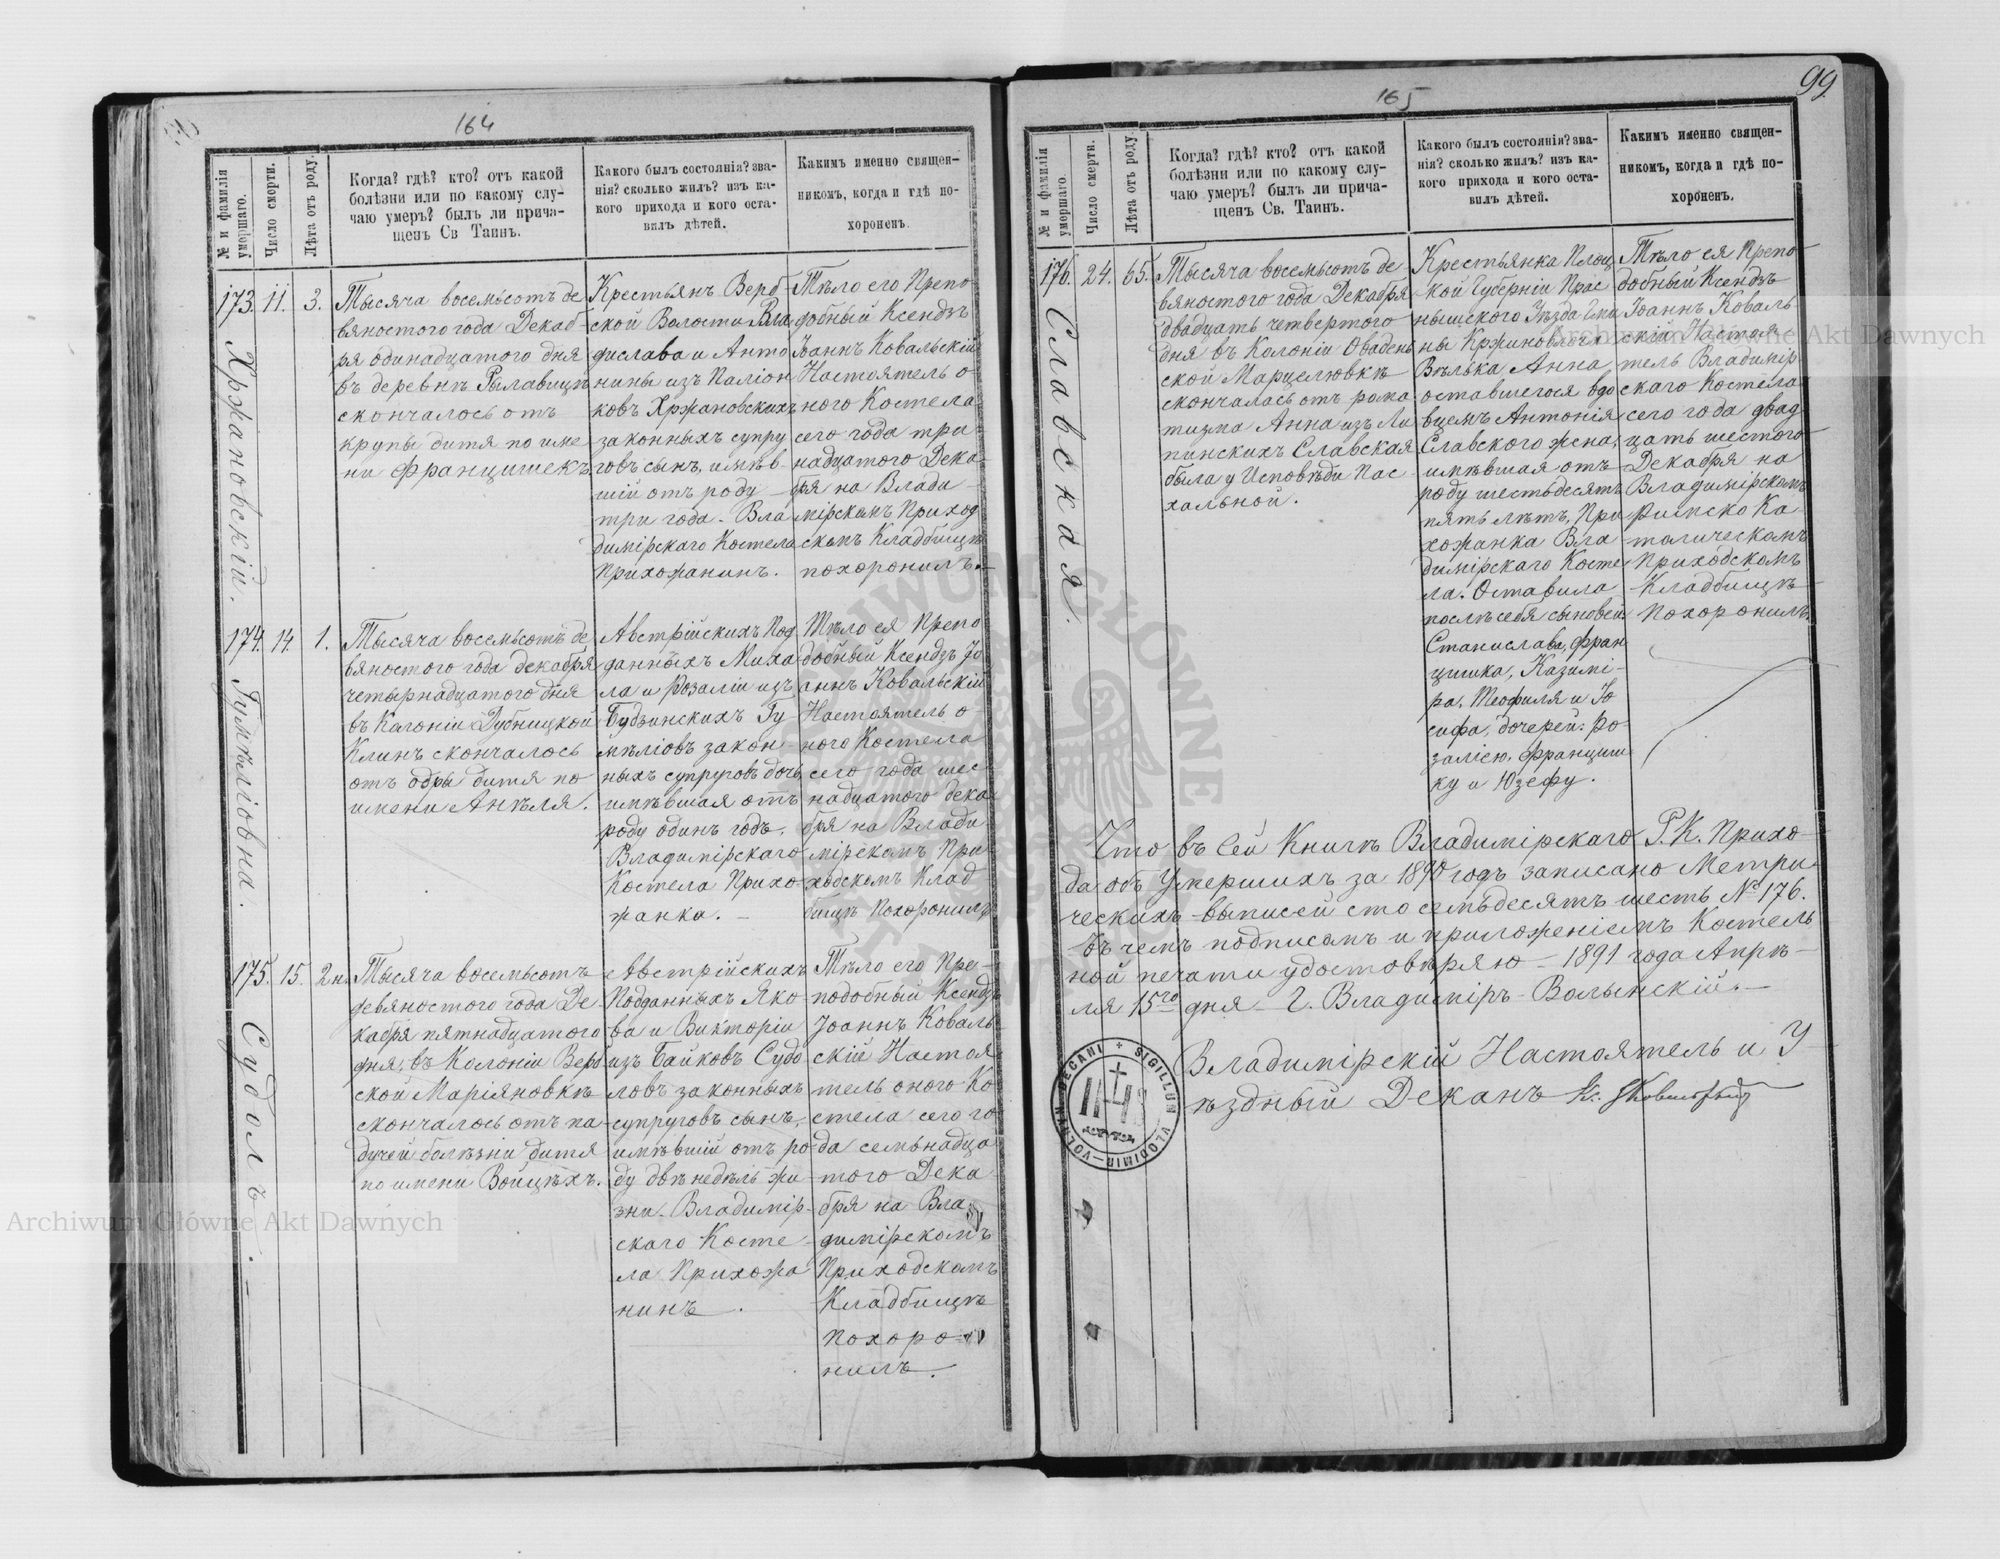 164
№ и фамилія умершаго.
Число смерти.
Лѣта отъ роду.
Когда? гдѣ? кто? отъ какой
болѣзни или по какому слу-
чаю умеръ? былъ ли прича-
щенъ Св Таинъ.
Какого былъ состоянія? зва-
нія? сколько жилъ? изъ ка-
кого прихода и кого оста-
вилъ дѣтей.
Каким именно священ-
никомъ, когда и гдѣ по-
хороненъ.
173.
Хржановскій.
11.
3.
Тысяча восемьсотъ де
вяностого года Декаб-
ря одинадцатого дня
въ деревнѣ Рылавицѣ
скончалось отъ
крупы дитя по име
ни Францишекъ
Крестьянъ Верб
ской Волости Вла
дислава и Анто
нины изъ Паліон
ковъ Хржановскихъ
законныхъ супру
говъ сынъ, имѣв
шій отъ роду
три года. Вла
димірскаго Костела
Прихожанинъ.
Тѣло его Препо
добный Ксендзъ
Іоаннъ Ковальскій
Настоятель о
ного Костела
сего года три
надцатого Дека
бря на Влади
мірскомъ Приход
скомъ Кладбищѣ
похоронилъ.
174.
Гумѣліовна.
14.
1.
Тысяча восемьсотъ де
вяностого года декабря
четырнадцатого дня
въ Колоніи Дубницкой
Клинъ скончалось
отъ одры дитя по
имени Анѣля.
Австрійскихъ Под
данныхъ Миха
ла и Розаліи изъ
Будзинскихъ Гу
мѣліовъ закон
ныхъ супруговъ дочь
имѣвшая отъ
роду одинъ годъ.
Владимірскаго
Костела Прихо
жанка.
Тѣло ея Препо
добный Ксендзъ Іо
аннъ Ковальскій
Настоятель о
ного Костела
сего года шес
надцатого дека
бря на Влади
мірскомъ При
ходскомъ Клад
бищѣ Похоронилъ
175.
Судолъ.
15.
2 н.
Тысяча восемьсотъ
девяностого года Де
кабря пятнадцатого
дня, въ Колоніи Верб
ской Маріяновкѣ
скончалось отъ па-
дучей болѣзни дитя
по имени Войцѣхъ.
Австрійскихъ
Подданныхъ Яко
ва и Викторіи
изъ Байковъ Судо
ловъ законныхъ
супруговъ сынъ,
имѣвшій отъ ро
ду двѣ недѣль жи
зни. Владимір-
скаго Косте
ла Прихожа
нинъ.
Тѣло его Пре-
подобный Ксендзъ
Іоаннъ Коваль
скій Настоя
тель оного Ко
стела сего го
да семьнадца
того Дека
бря на Вла
димірскомъ
Приходскомъ
Кладбищѣ
Похоро
нилъ.
165
99.
№ и фамилія умершаго.
Число смерти.
Лѣта отъ роду.
Когда? гдѣ? кто? отъ какой
болѣзни или по какому слу-
чаю умеръ? былъ ли прича-
щенъ Св. Таинъ.
Какого былъ состоянія? зва-
нія? сколько жилъ? изъ ка-
кого прихода и кого оста-
вилъ дѣтей.
Какимъ именно священ-
никомъ, когда и гдѣ по-
хороненъ.
176.
Славская.
24.
65.
Тысяча восемьсотъ де
вяностого года Декабря
двадцать четвертого
дня въ Колоніи Овадень
ской Марцелювкѣ
скончалась отъ рома
тизма Анна изъ Ли
пинскихъ Славская
была у Исповѣди Пас
хальной.
Крестьянка Плоц
кой Губерніи Прас
нышского Уѣзда Гми
ны Кржиновлога
Вѣлька Анна
оставшегося вдо
вцемъ Антонія
Славского жена,
имѣвшая отъ
роду шестьдесятъ
пять лѣтъ, При
хожанка Вла
димірскаго Косте
ла. Оставила
послѣ себя сыновей
Станислава, Фран
цишка, Казимі-
ра, Теофиля и Іо
сифа, дочерей: Ро
залію, Францишк
ку и Юзефу.
Тѣло ея Препо
добный Ксендзъ
Іоаннъ Коваль
скій Настоя
тель Владимір
скаго Костела
сего года двад
цать шестого
Декабря на
Владимірскомъ
Римско Ка
толическомъ
Приходскомъ
Кладбищѣ
Похоронилъ.
Что въ сей Книгѣ Владимірскаго Р. К. Прихо
да объ Умершихъ за 1890 годъ записано Метри
ческихъ выписей сто семьдесятъ шесть № 176.
въ чемъ подписомъ и приложеніемъ Костель
ной печати удостовѣряю - 1891 года Апрѣ-
ля 15го дня - Г. Владиміръ-Волынскій. -
Владимірскій Настоятель и У
ѣздный Деканъ К.
SIGILLUM VLODIMIR-VOLYN DECANI
Archiwum Główne Akt Dawnych
Archiwum Główne Akt Dawnych